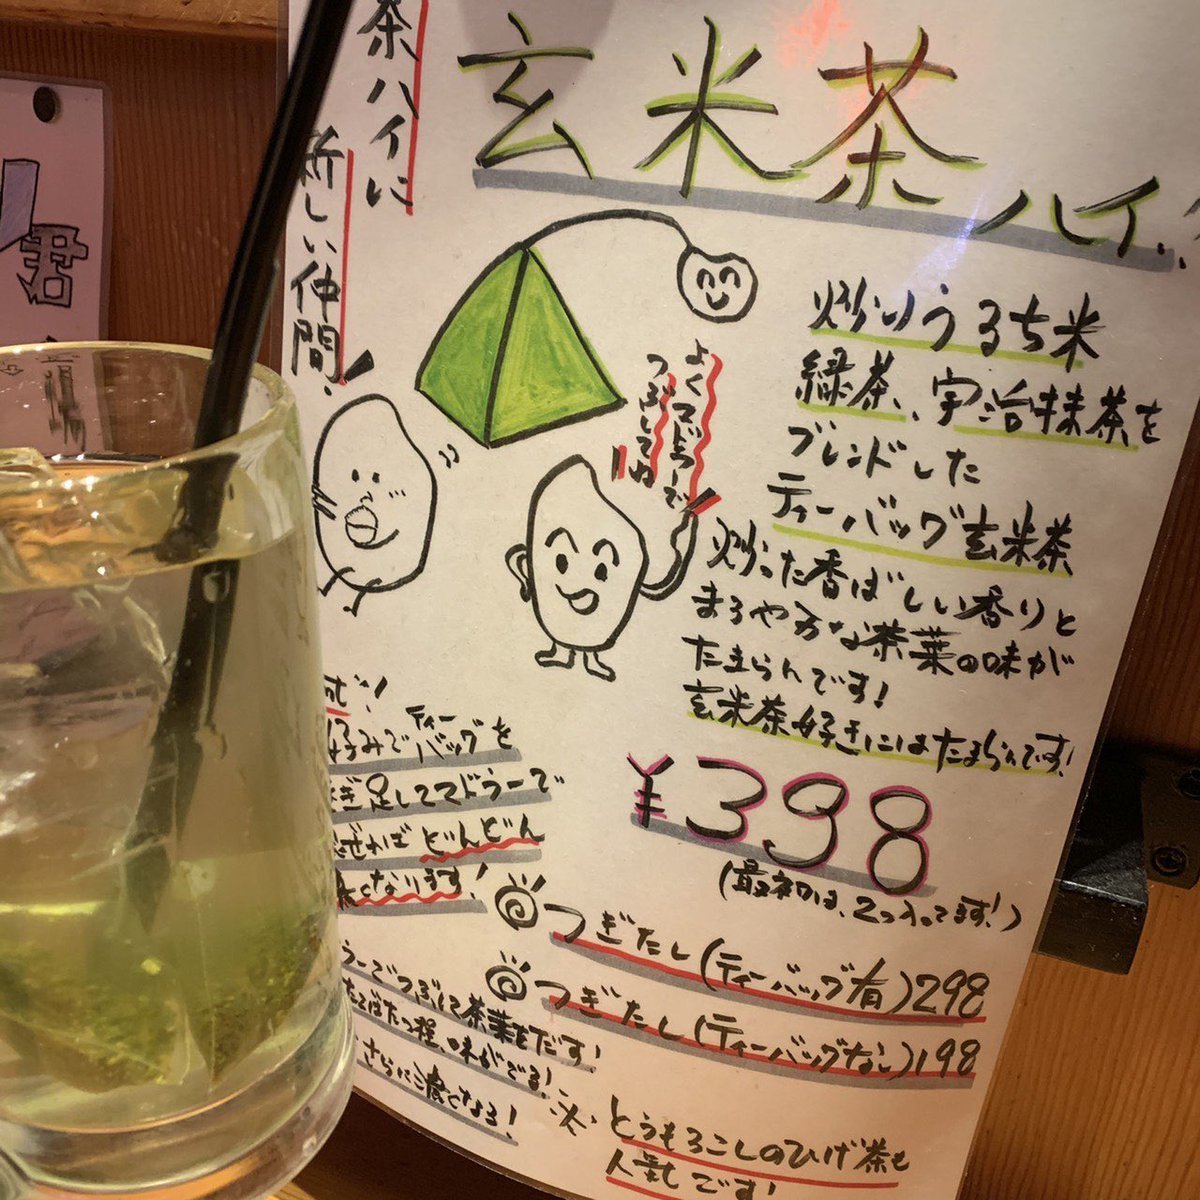 茶ハイに
新しい仲間!
玄米茶ハイ!!
炒りうるち米
緑茶、宇治抹茶を
ブレンドした
ティーバッグ玄米茶
炒った香ばしい香りと
まろやかな茶葉の味が
たまらんです!
玄米茶好きにはたまらんです!
よくマドラーで
つぶしてね
¥398
(最初は、2つ入ってます!)
つぎたし(ティーバッグ有)298
つぎたし(ティーバッグなし)198
※とうもろこしのひげ茶も
人気です!
好みでティーバッグを
つぎ足してマドラーで
混ぜれば どんどん
濃くなります!
ラーでつぶして茶葉をだす!
たてばたつ程、味がでる!
さらに濃くなる!
君